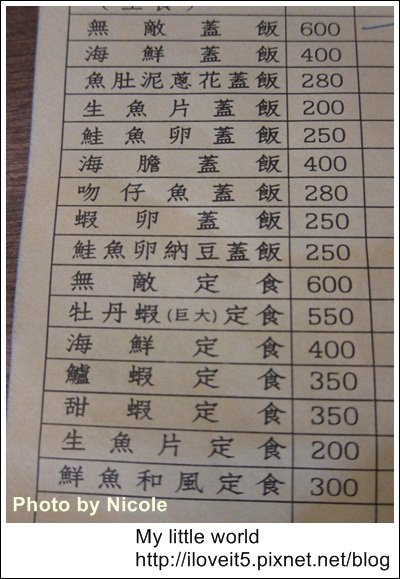 無敵蓋飯 600
海鮮蓋飯 400
魚肚泥蔥花蓋飯 280
生魚片蓋飯 200
鮭魚卵蓋飯 250
海膽蓋飯 400
吻仔魚蓋飯 280
蝦卵蓋飯 250
鮭魚卵納豆蓋飯 250
無敵定食 600
牡丹蝦(巨大)定食 550
海鮮定食 400
鱸蝦定食 350
甜蝦定食 350
生魚片定食 200
鮮魚和風定食 300
Photo by Nicole
My little world
http://iloveit5.pixnet.net/blog